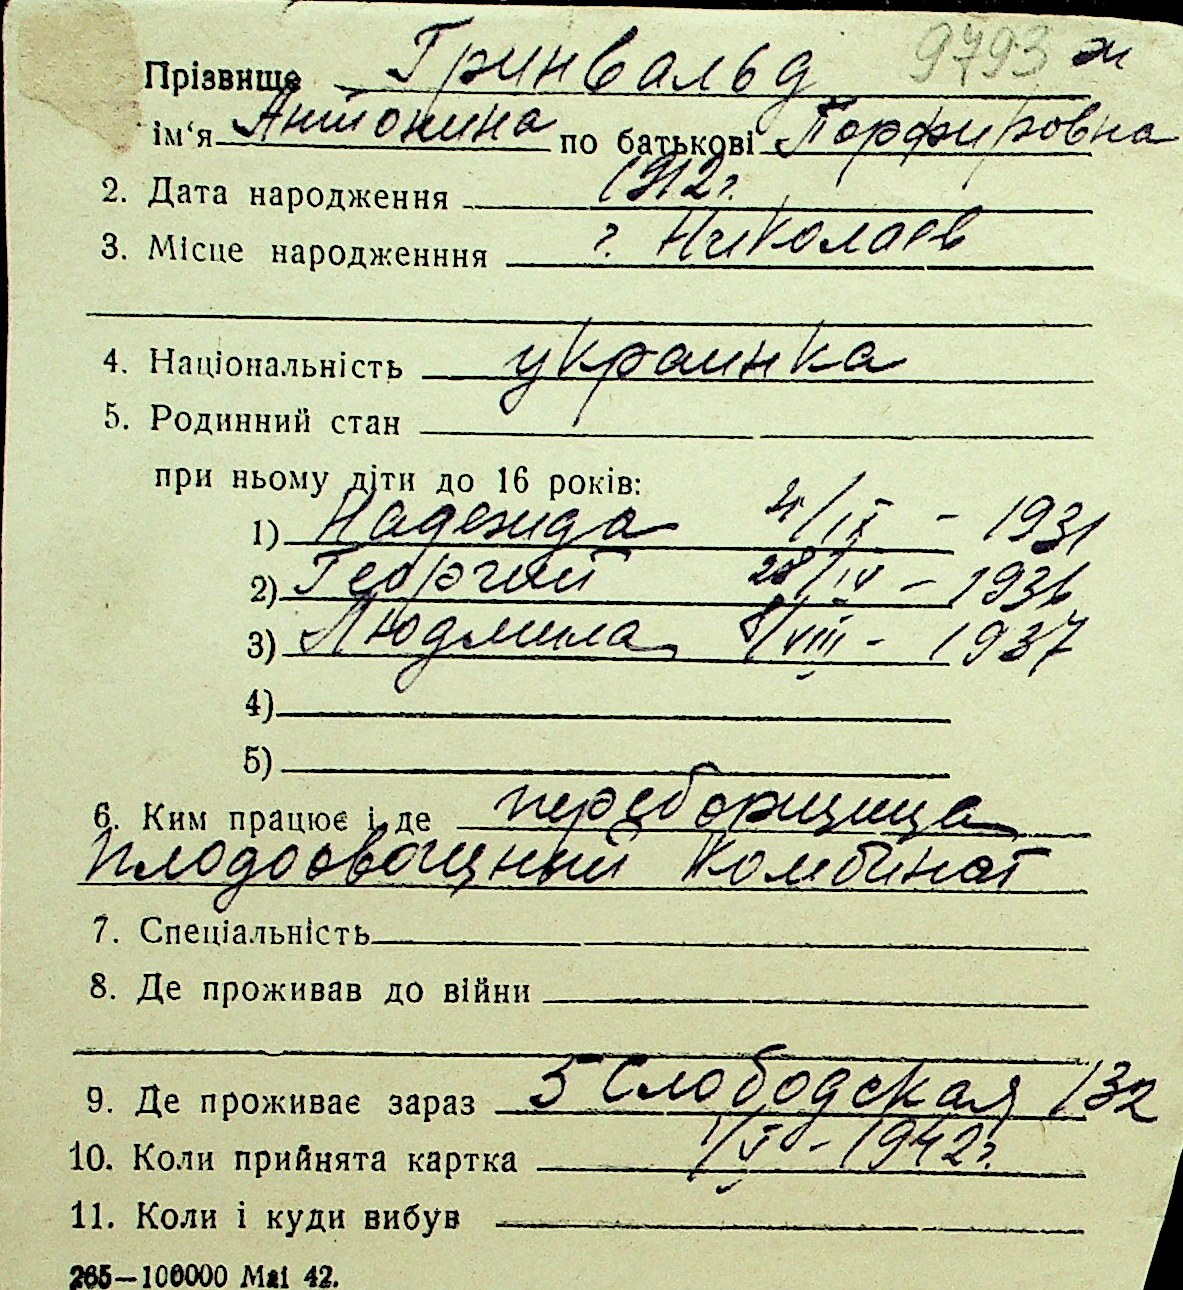 9793 ж
Прізвище Гринвальд
ім‘я Антонина по батькові Порфировна
2. Дата народження 1912 г.
3. Місце народженння г. Николаев
4. Національність украинка
5. Родинний стан
при ньому діти до 16 років:
1) Надежда 4/IX - 1931
2) Георгий 28/IV - 1936
3) Людмила 8/VIII - 1937
4)
5)
6. Ким працює і де переборщица
плодоовощный комбинат
7. Спеціальність
8. Де проживав до війни
9. Де проживає зараз 5 Слободская 132
10. Коли прийнята картка 1/V - 1942 г.
11. Коли і куди вибув
265—100000 Mai 42.